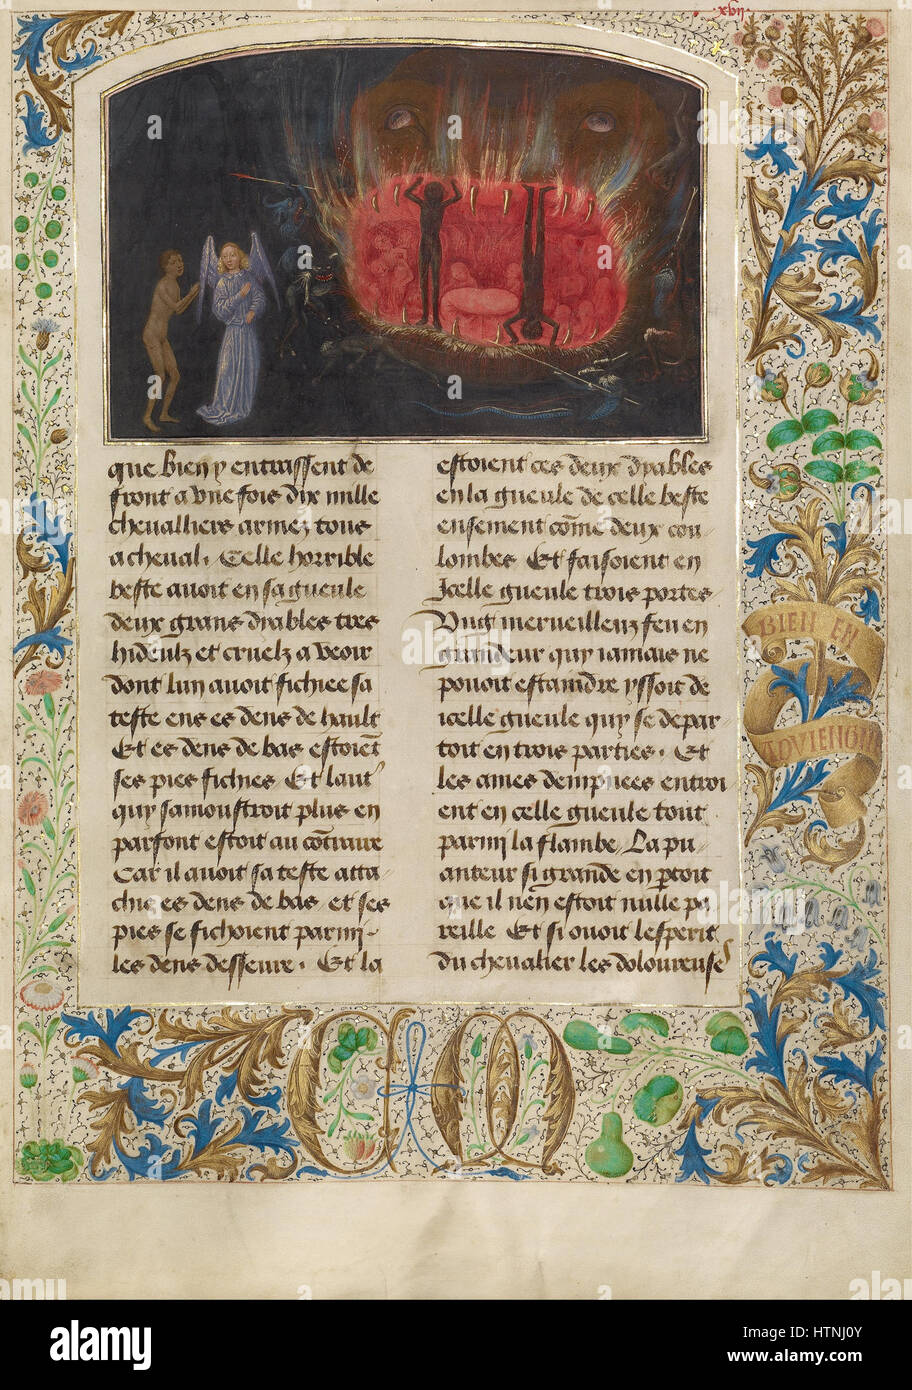 .xvij.
que bien y entrassent de
front a une fois dix mille
chevalliers armez tous
a cheval. Celle horrible
beste avoit en sa gueule
deux grans dyables tres
hideulx et cruelz a veoir
dont lun avoit fichiee sa
teste ens es dens de hault
Et es dens de bas estoient
ses pies fichies. Et laut'
quy samoustroit plus en
parfont estoit au cõtraire
Car il avoit sa teste atta
chie es dens de bas. et ses
pies se fichoient parmi
les dens desseure. Et la
estoient ces deux dyables
en la gueule de celle beste
ensement cõme deux cou
lombes. Et faisoient en
Icelle gueule trois portes
Ung merveilleux feu en
grandeur quy iamais ne
pouoit estaindre yssoit de
icelle gueule quy se depar
toit en trois parties. Et
les ames dempnees entroi
ent en celle gueule tout
parmi la flambe. La pu
anteur si grande en ptoit
que il nen estoit nulle pa
reille. Et si avoit lesperit
du chevalier les doloureuse
BIEN EN
ADVIENGNE
C M
alamy
Image ID: HTNJ0Y
www.alamy.com